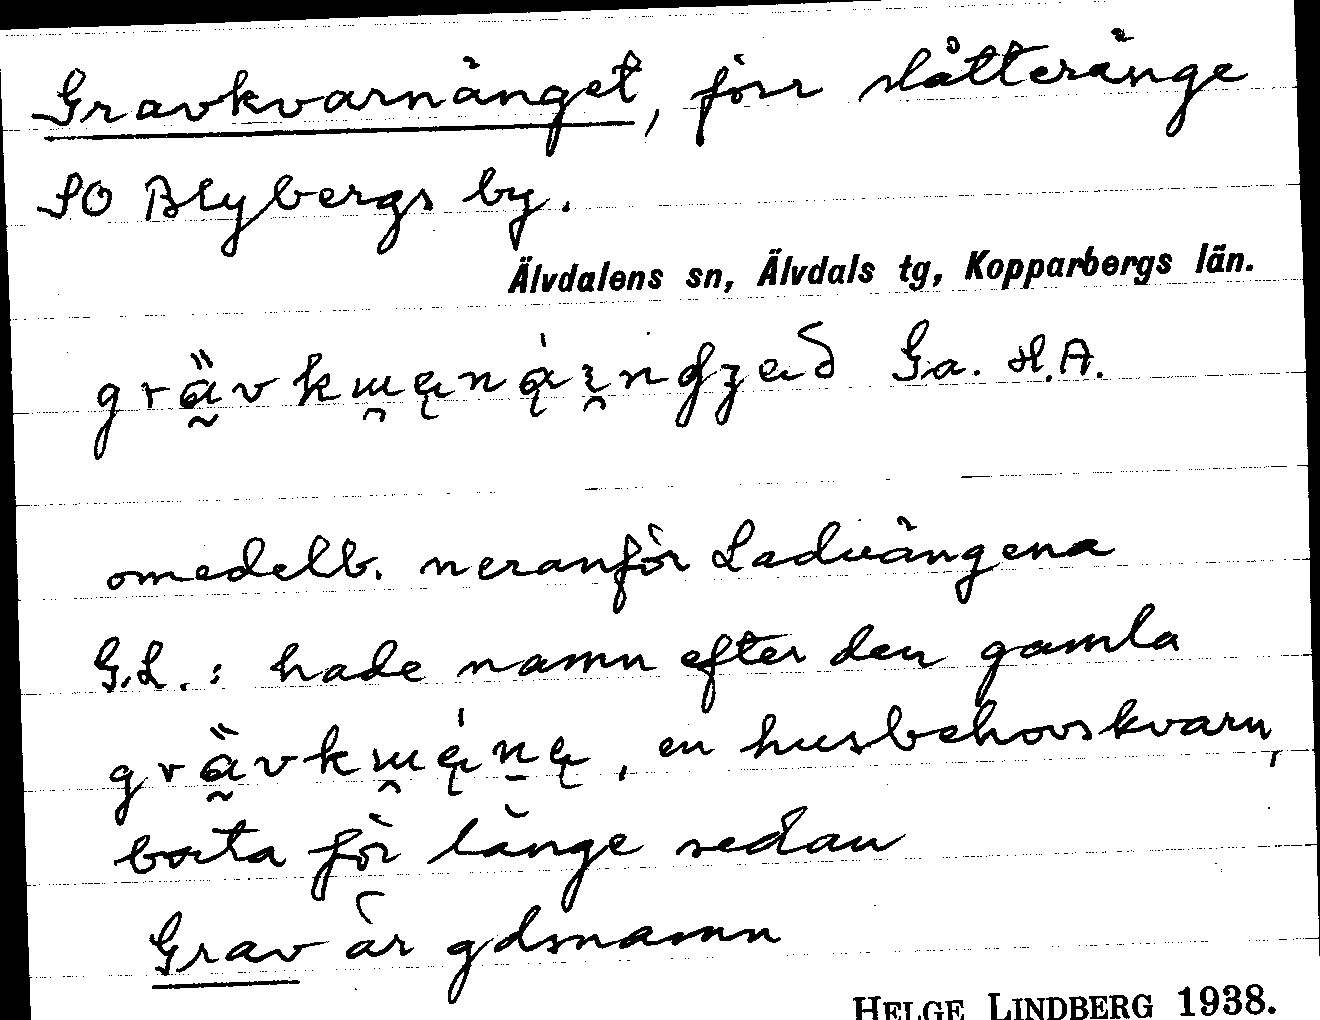 Gravkvarnänget, förr slåtteränge
SO Blybergs by.
Älvdalens sn, Älvdals tg, Kopparbergs län.
Ga. H.A.
omedelb. neranför Laduängena
G.L.: hade namn efter den gamla
, en husbehovskvarn,
borta för länge sedan
Grav är gdsnamn
HELGE LINDBERG 1938.